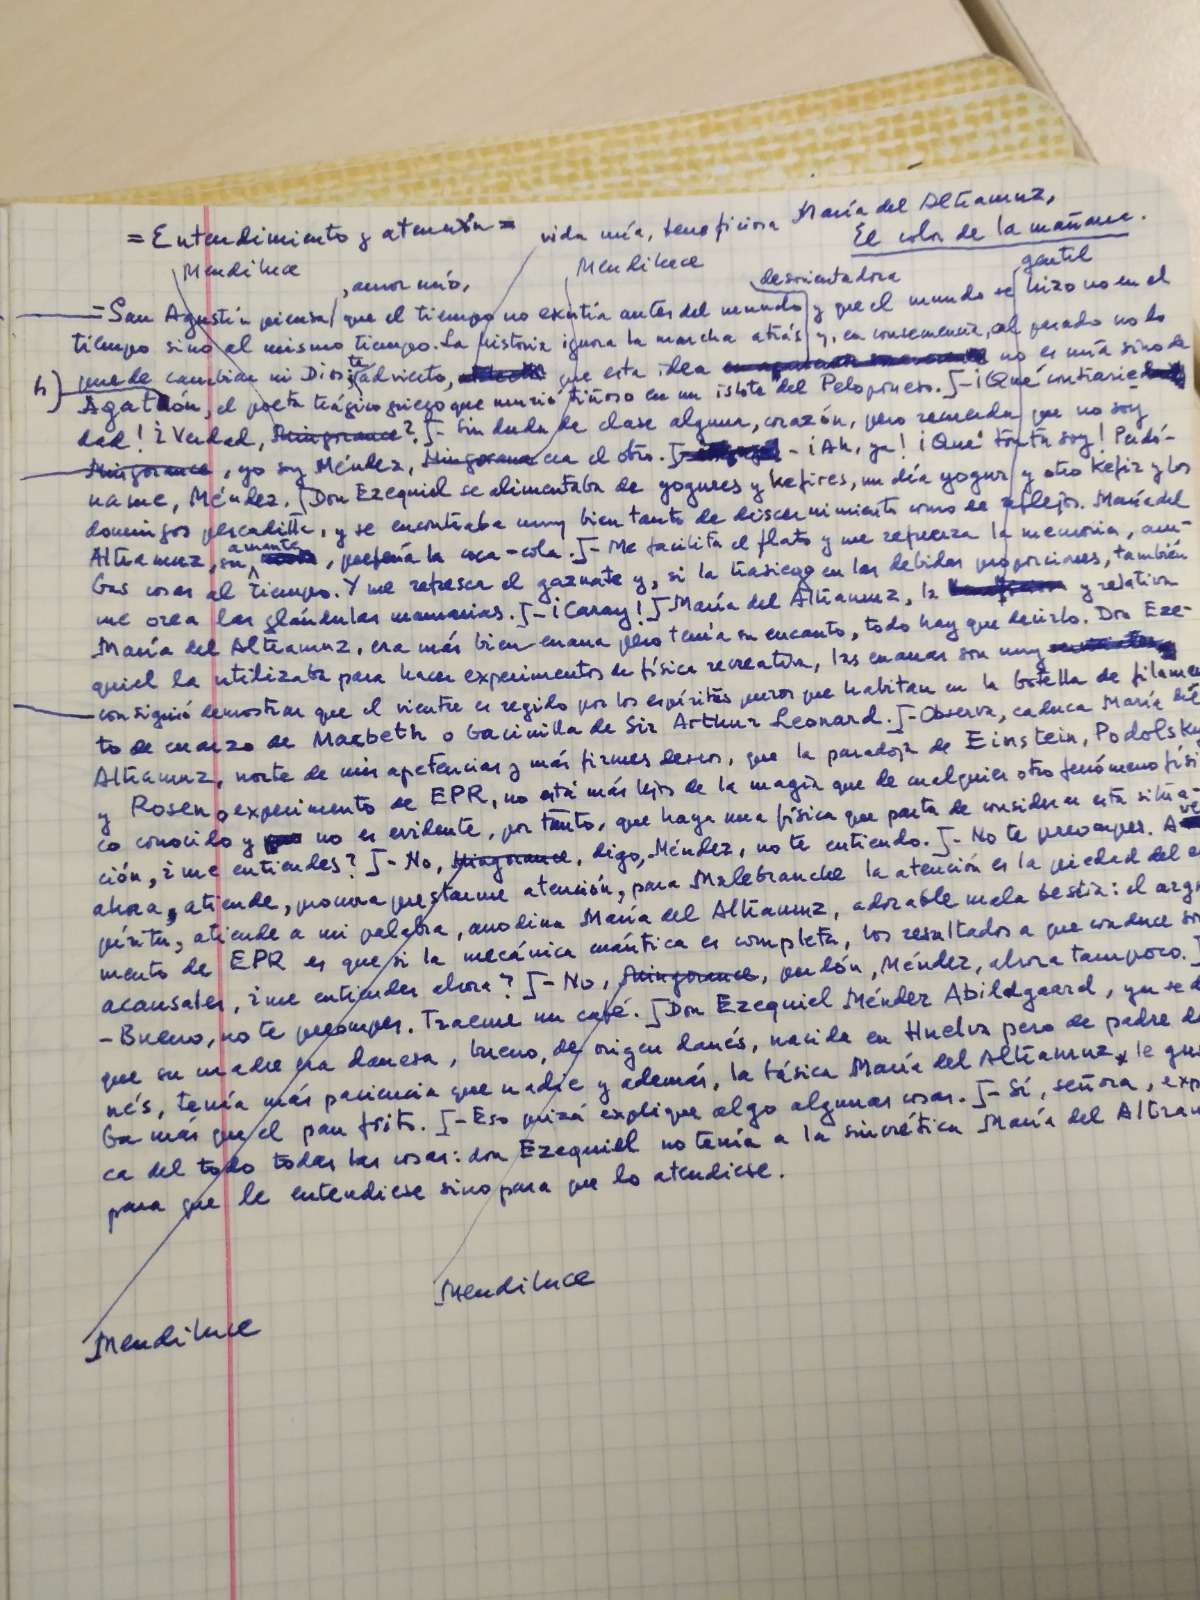 = Entendimiento y atención = vida mía, beneficiosa María del Altramuz,
El color de la mañana.
Mendiluce Mendiluce desorientadora gentil
, amor mío,
= San Agustín piensa que el tiempo no existía antes del mundo y que el mundo se hizo no en el
tiempo sino al mismo tiempo. La historia ignora la marcha atrás y, en consecuencia, el pasado no lo
h) puede cambiar ni Dios; te advierto, que esta idea no es mía sino de
Agatón, el poeta trágico griego que murió tiñoso en un islote del Peloponeso. ] - ¡Qué contrarie
dad! ¿Verdad, Mingorance? ] - Sin duda de clase alguna, corazón, pero recuerda que no soy
Mingorance, yo soy Méndez, Mingorance era el otro. ] - ¡Ah, ya! ¡Qué tonta soy! Perdó-
name, Méndez. ] Don Ezequiel se alimentaba de yogures y kefires, un día yogur y otro kefir y los
domingos pescadilla, y se encontraba muy bien tanto de discernimiento como de reflejos. María del
Altramuz, su amante, prefería la coca-cola. ] - Me facilita el flato y me refuerza la memoria, am-
bas cosas al tiempo. Y me refresca el gaznate y, si la trasiego en las debidas proporciones, también
me orea las glándulas mamarias. ] - ¡Caray! ] María del Altramuz, la y relativa
María del Altramuz, era más bien enana pero tenía su encanto, todo hay que decirlo. Don Eze-
quiel la utilizaba para hacer experimentos de física recreativa, las enanas son muy
consiguió demostrar que el vientre es regido por los espíritus puros que habitan en la botella de filamen
to de cuarzo de Macbeth o bacinilla de Sir Arthur Leonard. ] - Observa, caduca María del
Altramuz, norte de mis apetencias y más firmes deseos, que la paradoja de Einstein, Podolsky
y Rosen, o experimento de EPR, no está más lejos de la magia que de cualquier otro fenómeno físi
co conocido y no es evidente, por tanto, que haya una física que parta de considerar esta situa-
ción, ¿me entiendes? ] - No, Mingorance, digo, Méndez, no te entiendo. ] - No te preocupes. A ver
ahora, atiende, procura prestarme atención, para Malebranche la atención es la piedad del es
píritu, atiende a mi palabra, anodina María del Altramuz, adorable mala bestia: el argu
mento de EPR es que si la mecánica cuántica es completa, los resultados a que conduce son
acausales, ¿me entiendes ahora? ] - No, Mingorance, perdón, Méndez, ahora tampoco. ]
- Bueno, no te preocupes. Traeme un café. ] Don Ezequiel Méndez Abildgaard, ya se d
que su madre era danesa, bueno, de origen danés, nacida en Huelva pero de padre da
nés, tenía más paciencia que nadie y además, la básica María del Altramuz le gus
ba más que el pan frito. ] - Eso quizá explique algo algunas cosas. ] - Sí, señora, expl
ca del todo todas las cosas: don Ezequiel no tenía a la sincrética María del Altram
para que le entendiese sino para que lo atendiese.
Mendiluce
Mendiluce